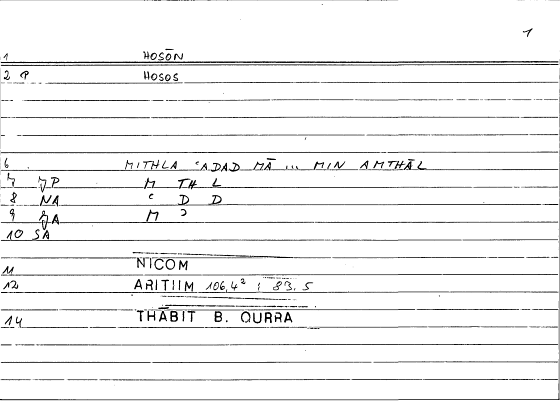 1
1 HOSŌN
2 φ HOSOS
6 . MITHLA ʿADAD MĀ ... MIN AMTHĀL
7 JP M TH L
8 NA ʿ D D
9 M ʾ
10 SA
11 NICOM
12 ARITIIM 106,4² ; 83,5
14 THĀBIT B. QURRA